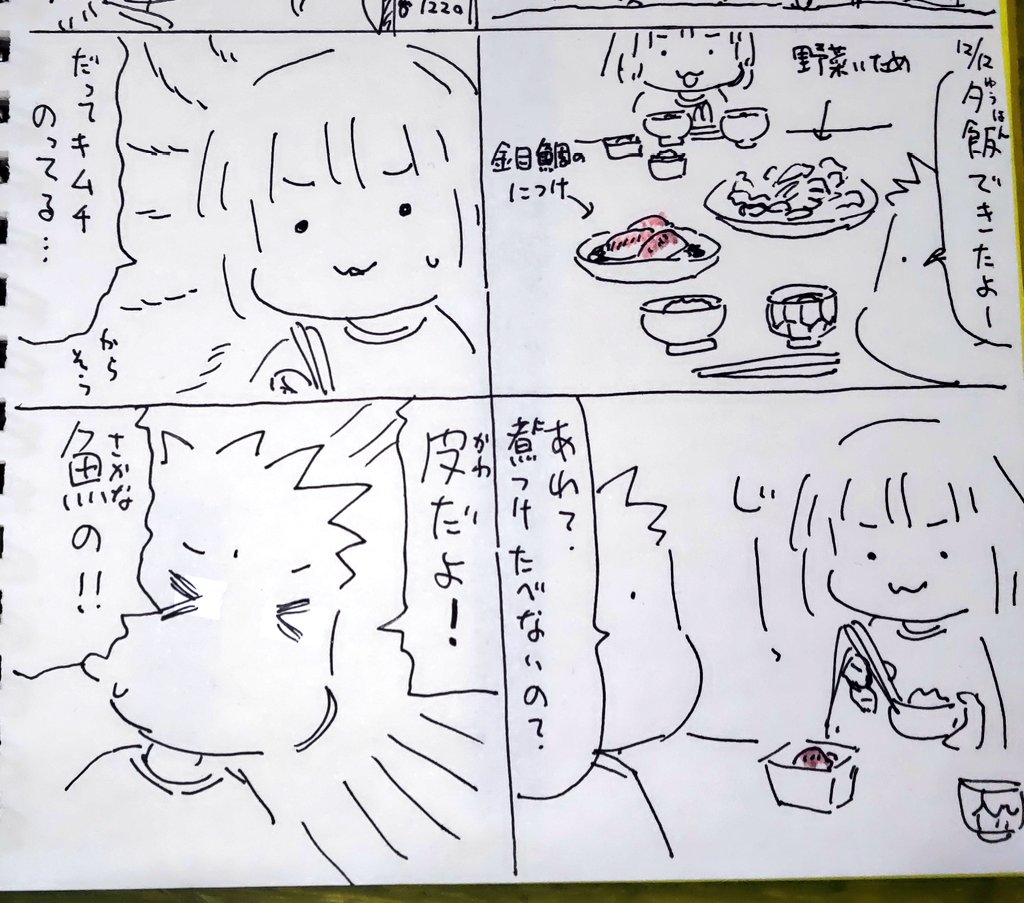 1220
12/12
夕飯できたよー
ゆうはん
野菜いため
金目鯛の
につけ
あれ?
煮つけたべないの?
じ
だってキムチ
のってる…
から
そう
皮だよ!
かわ
魚の!!
さかな